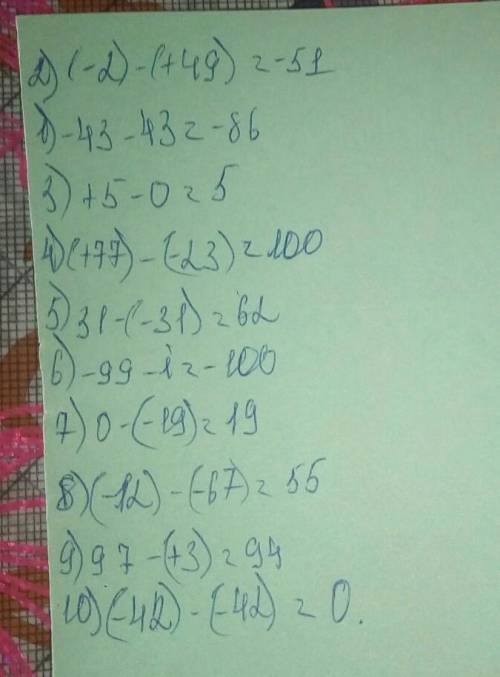 2) (-2) - (+49) = -51
1) -43 - 43 = -86
3) +5 - 0 = 5
4) (+77) - (-23) = 100
5) 31 - (-31) = 62
6) -99 - 1 = -100
7) 0 - (-19) = 19
8) (-12) - (-67) = 55
9) 97 - (+3) = 94
10) (-42) - (-42) = 0.